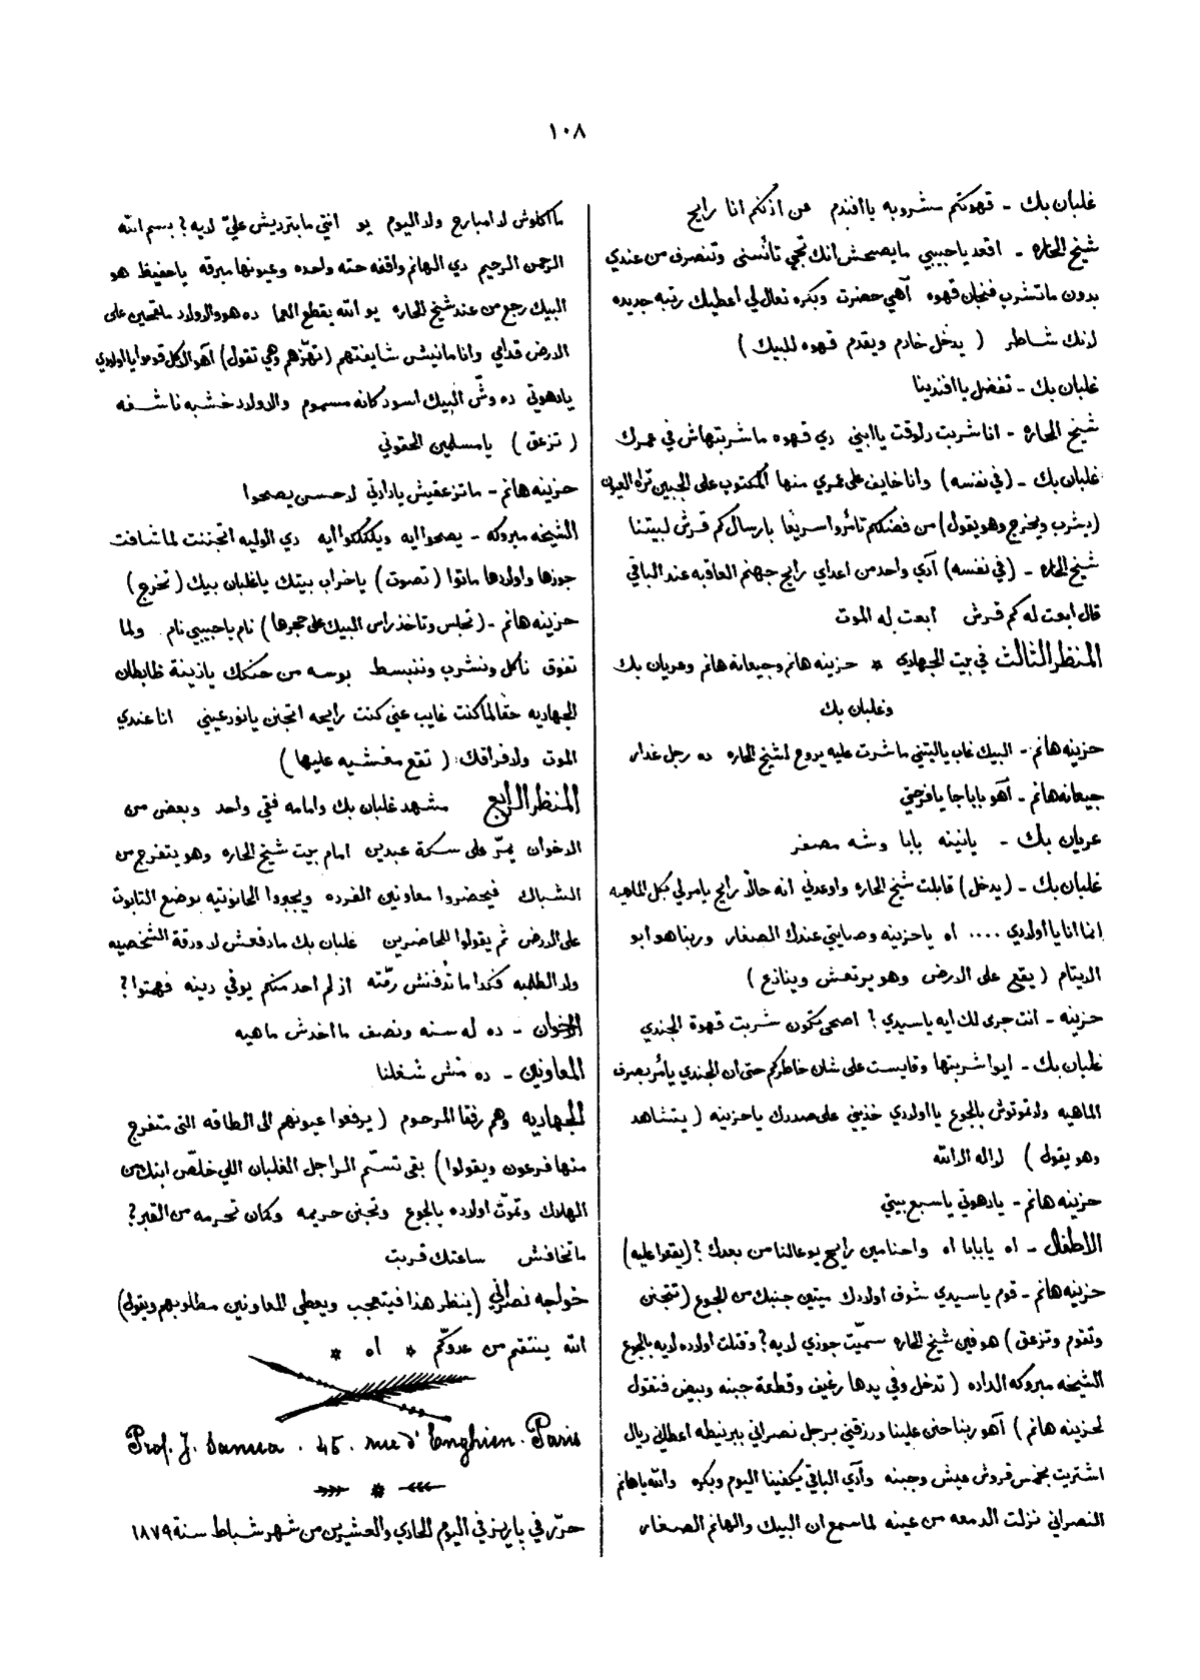 ١٠٨
غلبان بك - قهوتكم مشروبه يا افندم عن اذنكم انا رايح
شيخ الحاره - اقعد يا حبيبي ما يصحش انك تجي تأنسني وتنصرف من عندي
بدون ما تشرب فنجان قهوه آهي حضرت وبكره تعال لي اعطيك رتبه جديده
لانك شاطر ( يدخل خادم ويقدم قهوه للبيك )
غلبان بك - تفضل يا افندينا
شيخ الحاره - انا شربت دلوقت يا ابني دي قهوه ما شربتهاش في عمرك
غلبان بك - (في نفسه) وانا خايف على عمري منها المكتوب على الجبين تراه العيون
(يشرب ويخرج وهو يقول) من فضلكم تأمروا سريعا بارسال كم قرش لبيتنا
شيخ الحاره - (في نفسه) آدي واحد من اعداي رايح جهنم العاقبه عند الباقي
قال ابعت له كم قرش ابعت له الموت
المنظر الثالث في بيت الجهادي * حزينه هانم وجيعانه هانم وعريان بك
وغلبان بك
حزينه هانم - البيك غاب ياليتني ما شرت عليه يروح لشيخ الحاره ده رجل غدار
جيعانه هانم - آهو بابا جا يا فرحتي
عريان بك - يا نينه بابا وشه مصفر
غلبان بك - (يدخل) قابلت شيخ الحاره واوعدني انه حالا رايح يامر لي بكل الماهيه
انما انا يا اولادي .... اه يا حزينه وصايتي عندك الصغار وربنا هو ابو
الايتام ( يقع على الارض وهو يرتعش وينازع )
حزينه - انت جرى لك ايه يا سيدي ؟ اصحى تكون شربت قهوة الجندي
غلبان بك - ايوا شربتها وقايست على شان خاطركم حتى ان الجندي يأمر بصرف
الماهيه ولا تموتوش بالجوع يا اولادي خذيني على صدرك يا حزينه ( يتشاهد
وهو يقول ) لا اله الا الله
حزينه هانم - يا دهوتي يا سبع بيتي
الاطفال - اه يا بابا اه واحنا مين رايح يوعالنا من بعدك ؟ (يقعوا عليه)
حزينه هانم - قوم يا سيدي شوف اولادك ميتين جنبك من الجوع ( تتجنن
وتقوم وتزعق ) هو فين شيخ الحاره سميّت جوزي لايه ؟ وقتلت اولاده لايه بالجوع
الشيخه مبروكه الداده ( تدخل وفي يدها رغيف وقطعة جبنه وبيض فتقول
لحزينه هانم ) آهو ربنا حنن علينا ورزقني برجل نصراني ببرنيطه اعطاني ريال
اشتريت بخمس قروش عيش وجبنه وآدي الباقي يكفينا اليوم وبكره والله يا هانم
النصراني نزلت الدمعه من عينه لما سمع ان البيك والهانم الصغار
ما اكلوش لا امبارح ولا اليوم يو انتي ما بترديش عليّ لايه ؟ بسم الله
الرحمن الرحيم دي الهانم واقفه حته واحده وعيونها مبرقه يا حفيظ هو
البيك رجع من عند شيخ الحاره يو الله يقطع العما ده هو والاولاد ملقحين على
الارض قدامي وانا مانيش شايفتهم ( تهزهم وهي تقول ) آهو الاكل قوموا يا اولادي
يا دهوتي ده وشّ البيك اسود كانه مسموم والاولاد خشبه ناشفه
( تزعق ) يا مسلمين الحقوني
حزينه هانم - ما تزعقيش يا دادتي لاحسن يصحوا
الشيخه مبروكه - يصحوا ايه ويكككوا ايه دي الوليه اتجننت لما شافت
جوزها واولادها ماتوا ( تصوت ) يا خراب بيتك يا غلبان بيك ( تخرج )
حزينه هانم - ( تجلس وتاخذ راس البيك على حجرها ) نام يا حبيبي نام ولما
تفوق ناكل ونشرب وننبسط بوسه من حنكك يا زينة ظابطان
الجهاديه حقا لما كنت غايب عني كنت رايحه اتجنن يا نور عيني انا عندي
الموت ولا فراقك ( تقع مغشيه عليها )
المنظر الرابع مشهد غلبان بك وامامه فقي واحد وبعض من
الاخوان يمرّ على سكة عبدين امام بيت شيخ الحاره وهو يتفرج من
الشباك فيحضروا معاونين الفرده ويجبروا الحانوتيه بوضع التابوت
على الارض ثم يقولوا للحاضرين غلبان بك ما دفعش لا ورقة الشخصيه
ولا الطلبه فكدا ما تُدفنش رمّته از لم احد منكم يوفي دينه فهمتوا ؟
الاخوان - ده له سنه ونصف ما اخدش ماهيه
المعاونين - ده مش شغلنا
الجهاديه وهم رفقا المرحوم ( يرفعوا عيونهم الى الطاقه التى متفرج
منها فرعون ويقولوا ) بقى تسمّ الراجل الغلبان اللي خلّص ابنك من
الهلاك وتموّت اولاده بالجوع وتجنن حريمه وكمان تحرمه من القبر ؟
ما تخافش ساعتك قربت
خواجه نصراني (ينظر هذا فيتعجب ويعطي للمعاونين مطلوبهم ويقول)
الله ينتقم من عدوّكم * اه *
Prof. J. Sanua. 45. rue d'Enghien. Paris
*
حرّر في باريز في اليوم الحادي والعشرين من شهر شباط سنة ١٨٧٩